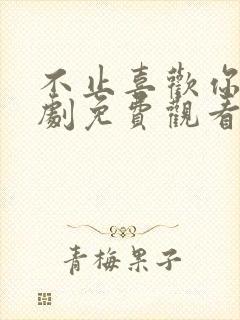 不止喜歡你
劇免費觀看
青梅果子